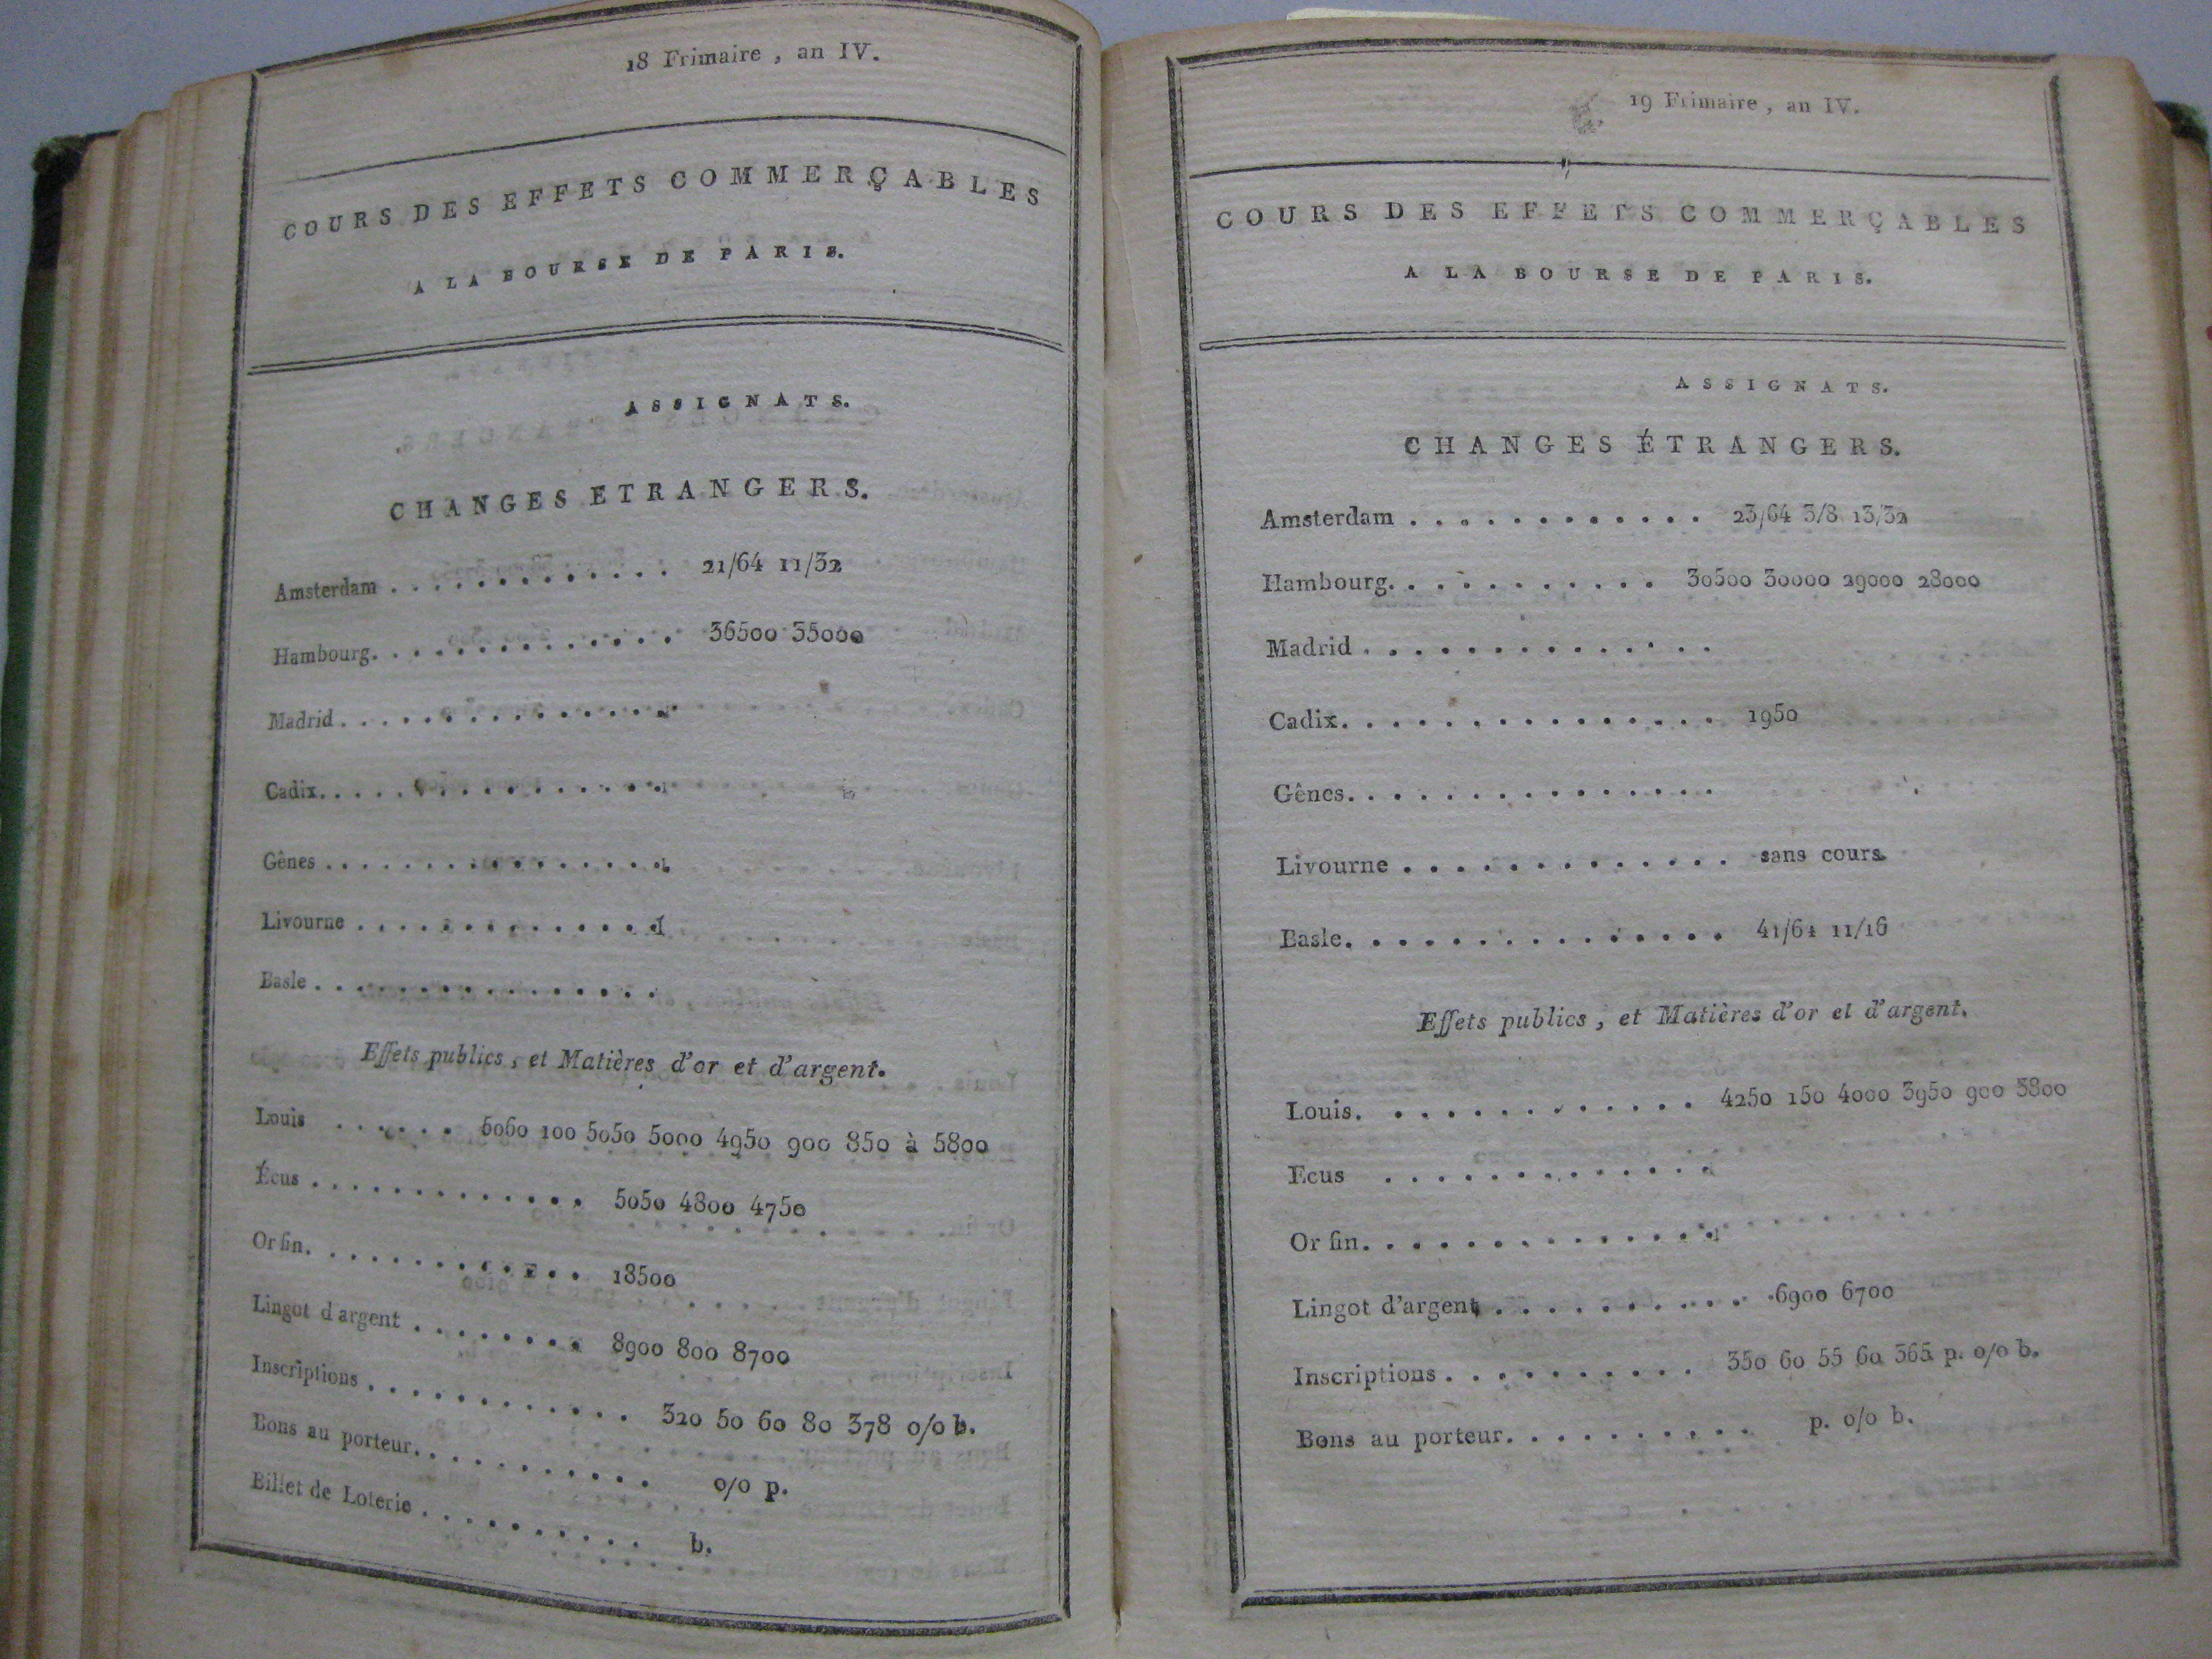 18 Frimaire, an IV.
COURS DES EFFETS COMMERÇABLES
A LA BOURSE DE PARIS.
ASSIGNATS.
CHANGES ETRANGERS.
Amsterdam . . . . . . . . . . . . . 21/64 11/32
Hambourg. . . . . . . . . . . . . 36500 35000
Madrid . . . . . . . . . . . . . .
Cadix. . . . . . . . . . . . . . .
Gênes . . . . . . . . . . . . . .
Livourne . . . . . . . . . . . . .
Basle . . . . . . . . . . . . . .
Effets publics, et Matières d'or et d'argent.
Louis . . . . . . 5050 5000 4950 900 850 à 5800
Écus . . . . . . . . . . . . 5050 4800 4750
Or fin. . . . . . . . . . . . 18500
Lingot d'argent . . . . . . . . 8900 800 8700
Inscriptions . . . . . . . . . . . 320 50 60 80 378 o/o b.
Bons au porteur. . . . . . . . . . o/o p.
Billet de Loterie . . . . . . . . . . b.
19 Frimaire, an IV.
COURS DES EFFETS COMMERÇABLES
A LA BOURSE DE PARIS.
ASSIGNATS.
CHANGES ÉTRANGERS.
Amsterdam . . . . . . . . . . . . 23/64 3/8 13/32
Hambourg. . . . . . . . . . . 30500 30000 29000 28000
Madrid . . . . . . . . . . . . . .
Cadix. . . . . . . . . . . . . . . 1950
Gênes. . . . . . . . . . . . . . .
Livourne . . . . . . . . . . . . . sans cours
Basle. . . . . . . . . . . . . . . 41/64 11/16
Effets publics, et Matières d'or et d'argent.
Louis. . . . . . . . . . . . . 4250 150 4000 3950 900 3800
Ecus . . . . . . . . . . . . .
Or fin. . . . . . . . . . . . . .
Lingot d'argent . . . . . . . . . . 6900 6700
Inscriptions . . . . . . . . . . 350 60 55 60 365 p. o/o b.
Bons au porteur. . . . . . . . . . p. o/o b.